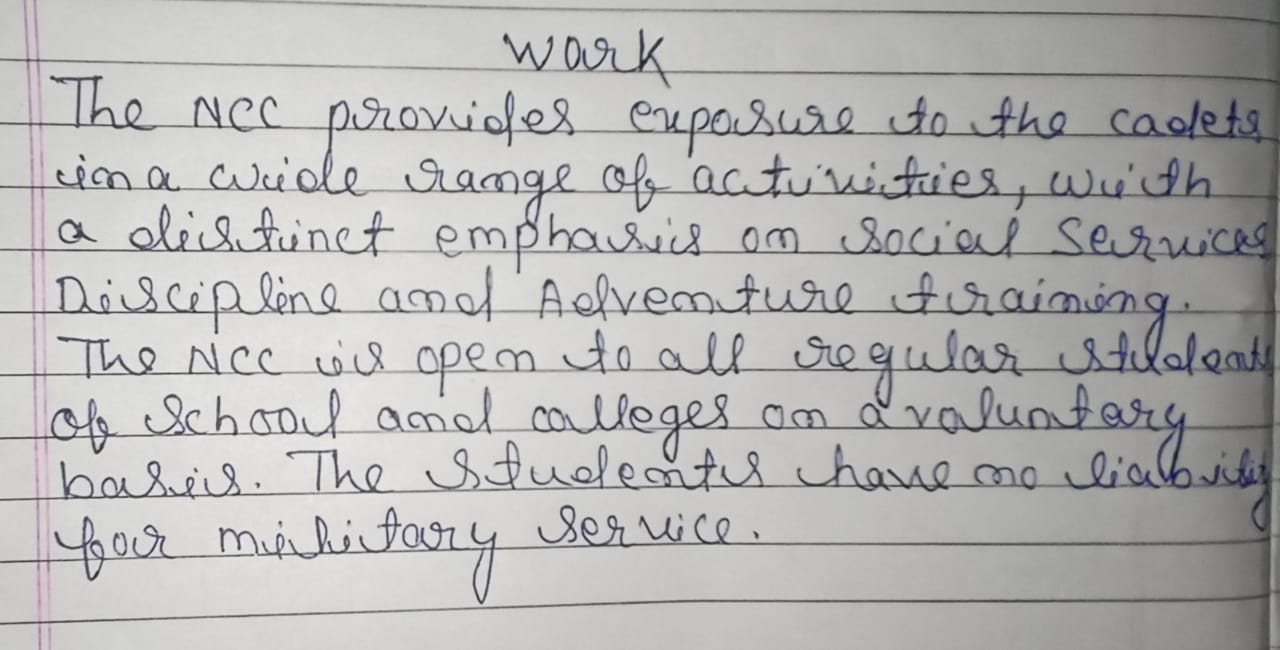 Work
The NCC provides exposure to the cadets
in a wide range of activities, with
a distinct emphasis on social Services
Discipline and Adventure training.
The NCC is open to all regular students
of school and colleges on a voluntary
basis. The students have no liability
for military service.